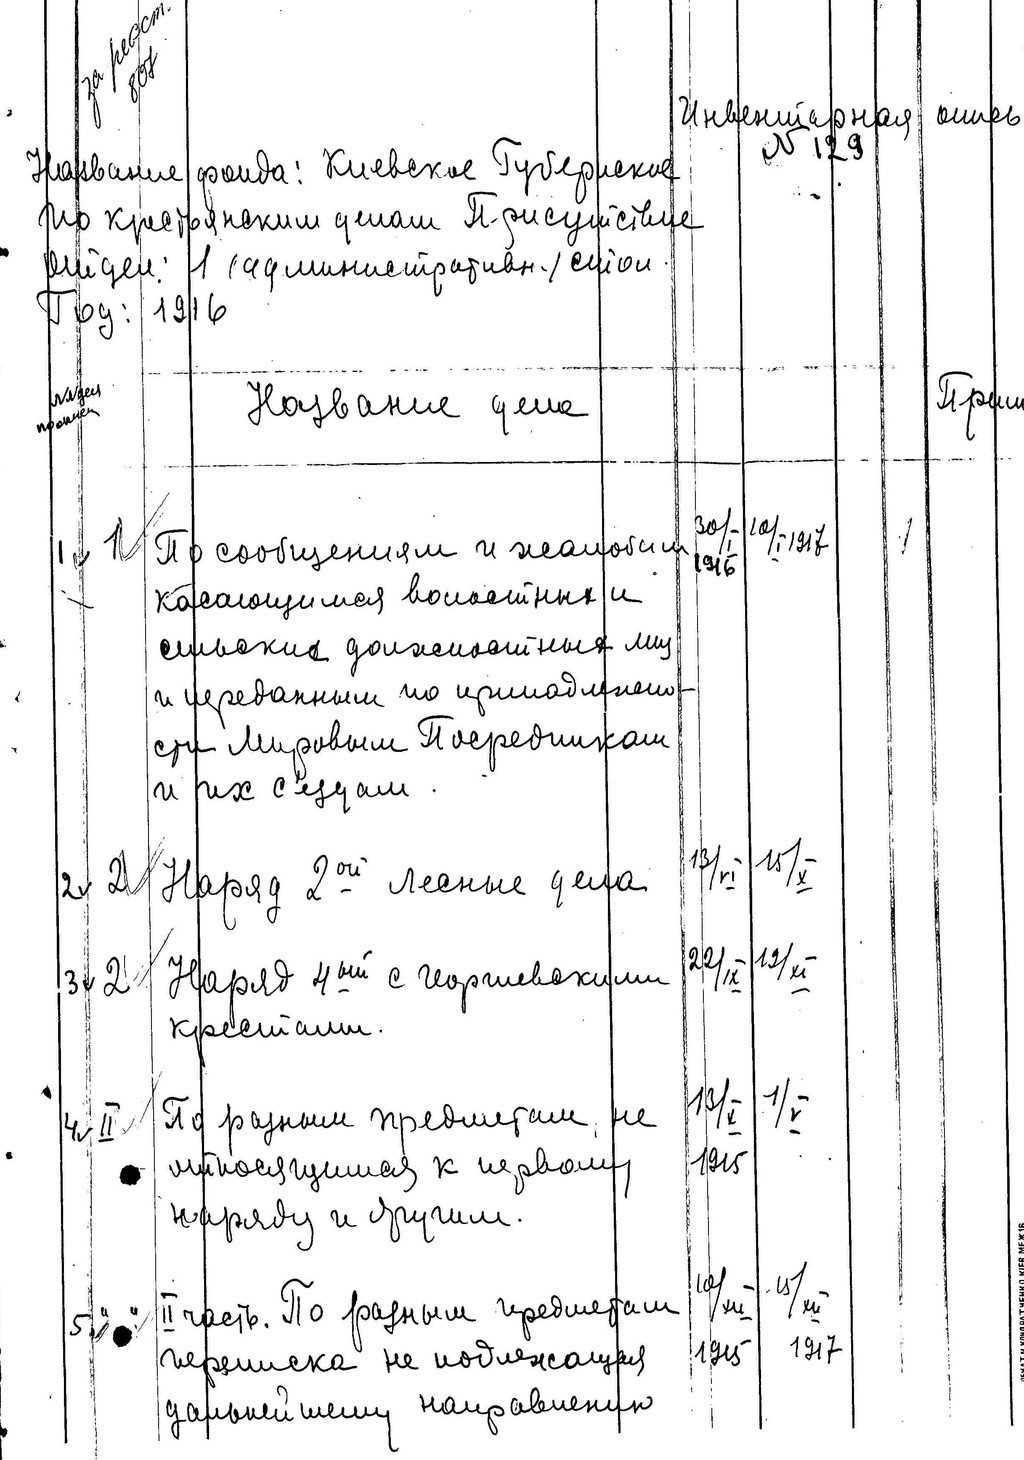 за реест.
801
Инвентарная опись
N 129
Название фонда: Киевское Губернское
по крестьянским делам Присутствие
отдел: 1 /административн./ стол.
Год: 1916
Название дела
Прим
1 1 По сообщениям и жалобам 30/I 1916 10/I 1917 1
касающимся волостных и
сельских должностных лиц
и переданным по принадлежно-
сти Мировым Посредникам
и их с'ездам.
2 2 Наряд 2ой лесные дела 13/VI 15/X
3 2 Наряд 4ый с георгиевскими 22/IX 12/XI
крестами.
4 II По разным предметам, не 13/X 1/V
относящимся к первому 1915
наряду и другим.
5 " " II часть. По разным предметам 10/XII 15/XII
переписка не подлежащая 1915 1917
дальнейшему направлению